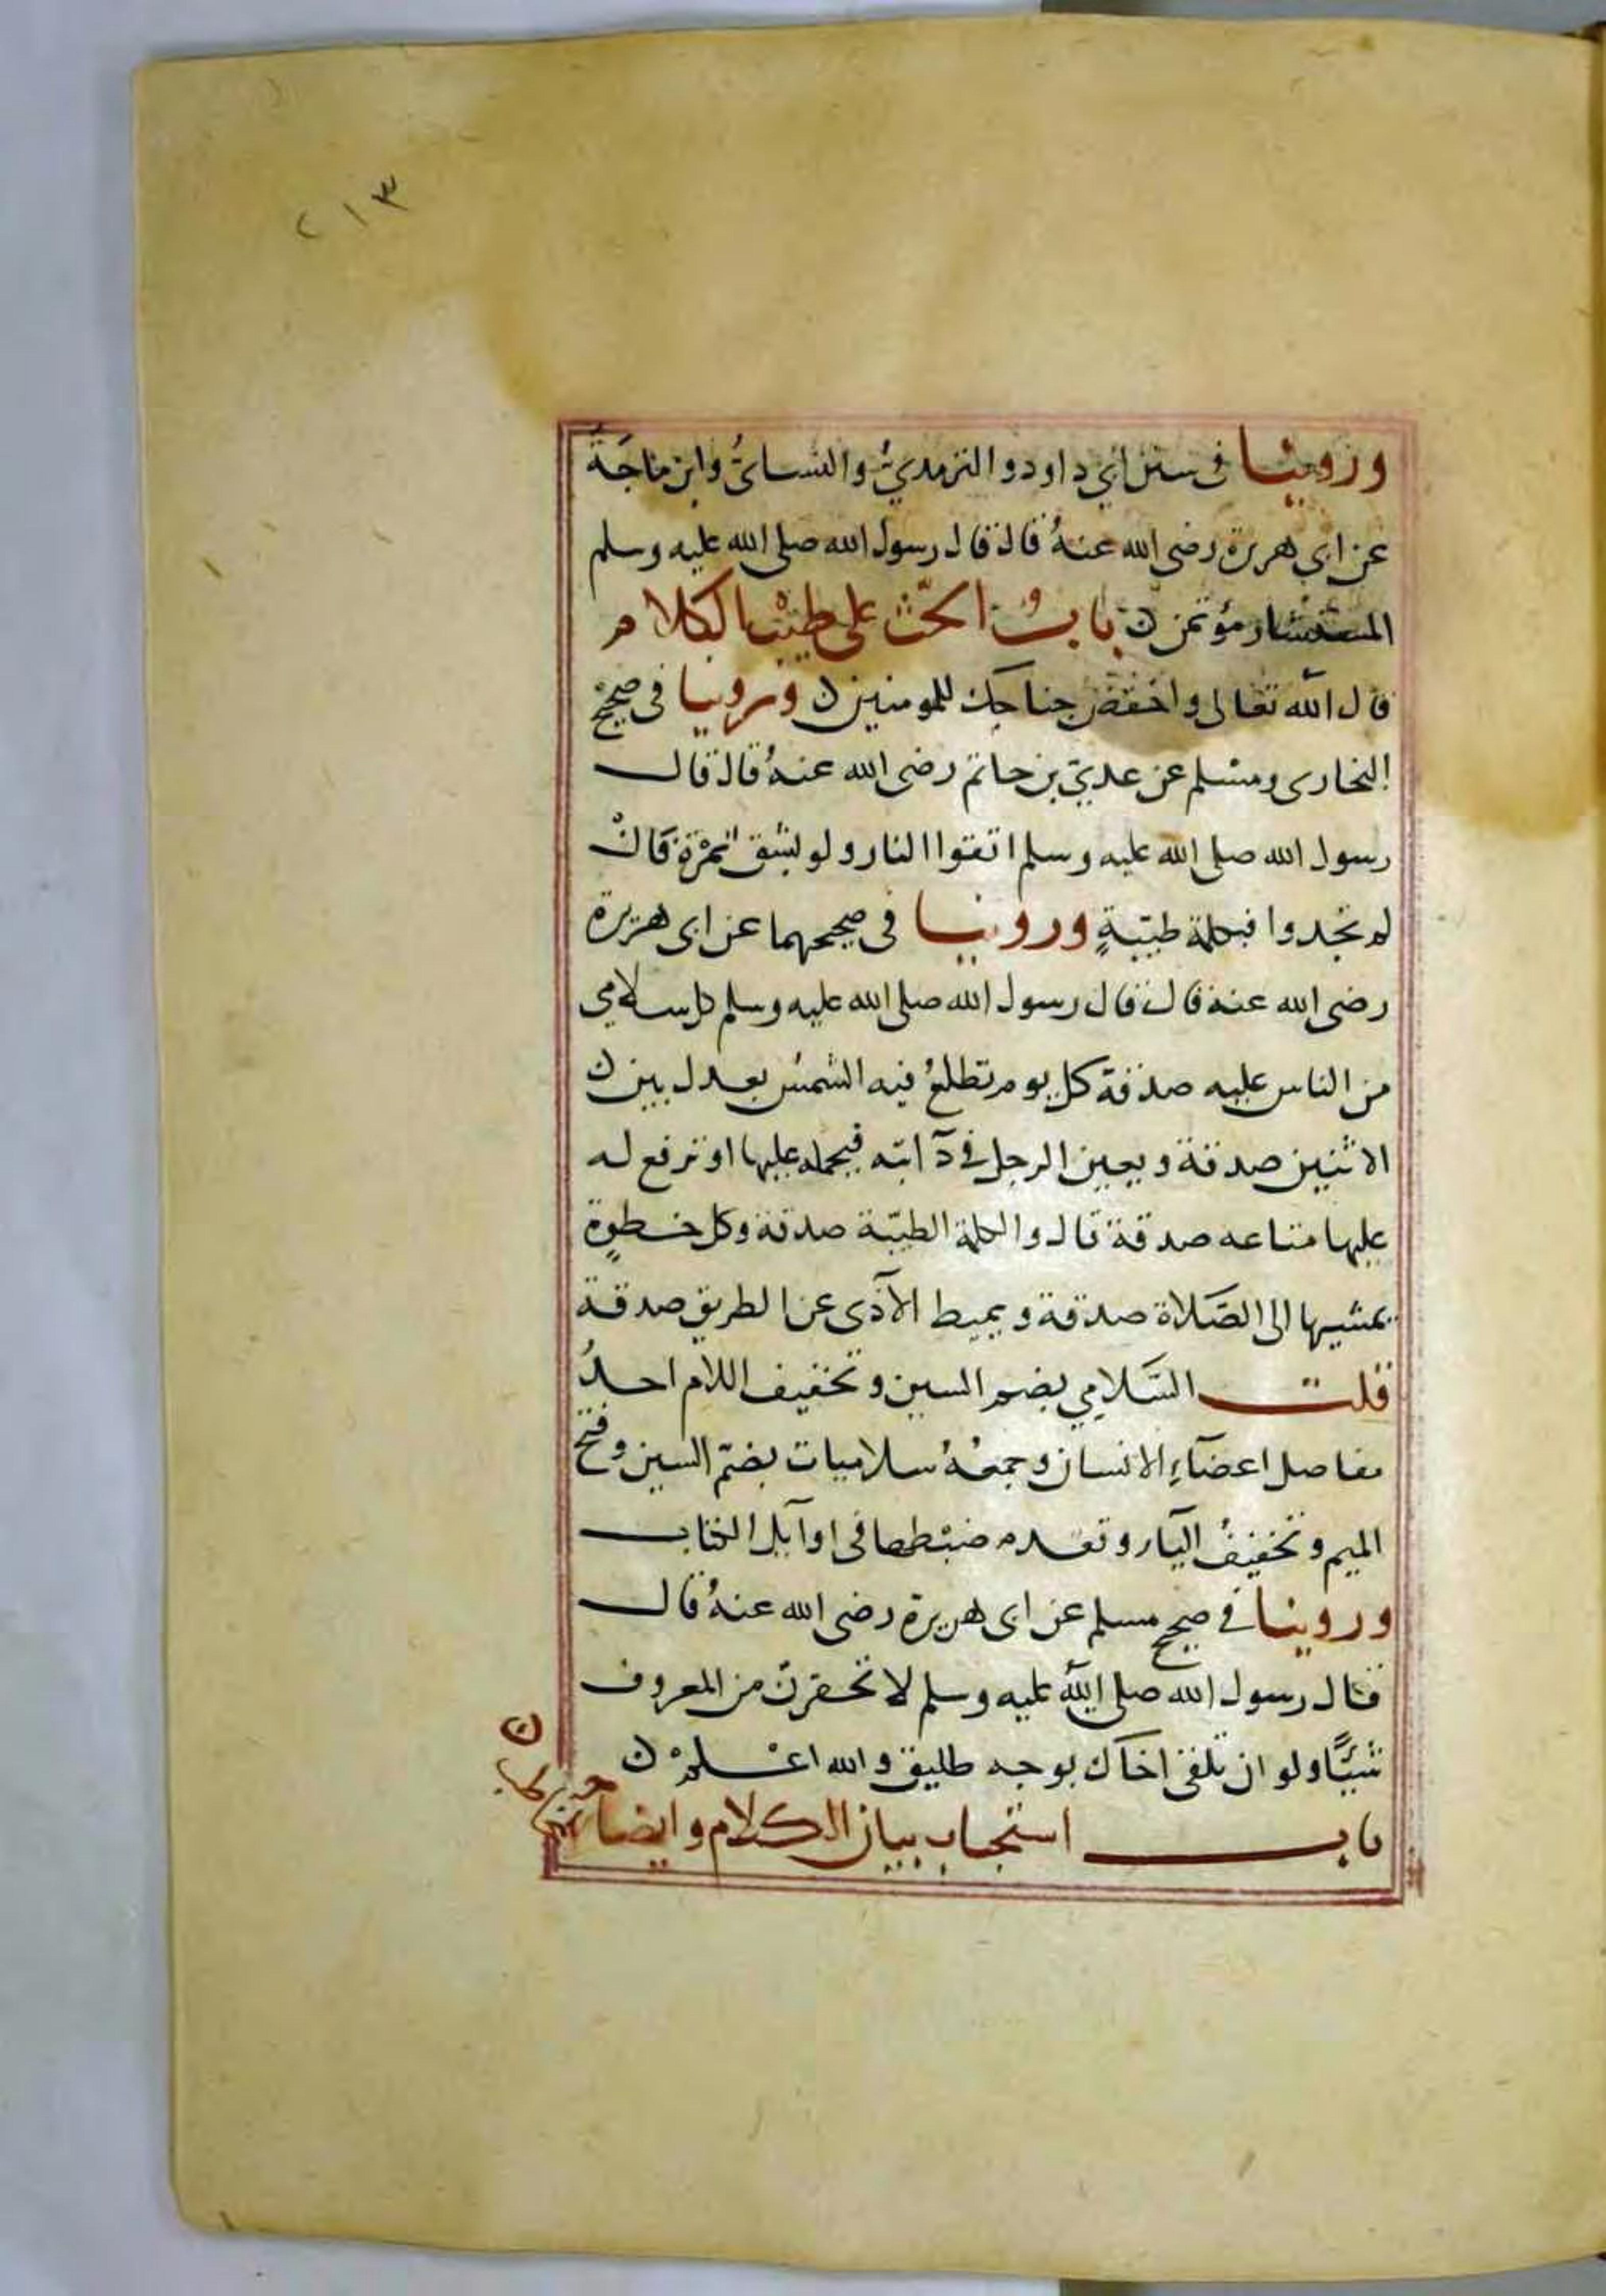 ٢١٣
وروينا فى سنن ابي داود والترمديُّ والنسائىُّ وابن ماجَةَ
عن ابى هريرة رضى الله عنهُ قال قال رسول الله صلى الله عليه وسلم
المستشار مؤتمن ن بابُ الحَثّ على طيْب الكلام
قال الله تعالى واخفض جناحك للمومنين ن وروينا فى صحيح
البخارى ومسلم عن عديّ بن حاتم رضى الله عنهُ قال قال
رسول الله صلى الله عليه وسلم اتقوا النار ولو بشق تمْرة فَانْ
لم تجدوا فبكلمة طيّبةٍ وروينا فى صحيحهما عن ابى هريرة
رضى الله عنه قال قال رسول الله صلى الله عليه وسلم كل سلامي
من الناس عليه صدقة كل يوم تطلعُ فيه الشمسُ يعدل بين ن
الاثنين صدقة ويعين الرجل فى دآبته فيحمله عليها او ترفع له
عليها متاعه صدقة قال والكلمة الطيّبة صدقة وكل خطوةٍ
يمشيها الى الصَّلاة صدقة ويميط الآذى عن الطريق صدقة
قلت السَّلامي بضم السين وتخفيف اللام احدُ
مفاصل اعضآءِ الانسان وجمعُهُ سلاميات بضمّ السين وفتح
الميم وتخفيفُ اليآر وتقدم ضبْطها فى اوآيل الكتاب
وروينا فى صحيح مسلم عن ابى هريرة رضى الله عنهُ قال
قال رسول الله صلى اللهُ عليه وسلم لا تحقرنّ من المعروف
شيًّا ولو ان تلقى اخاك بوجه طليق والله اعْلمْ ن
باب استحباب بيان الكلام وايضاحه